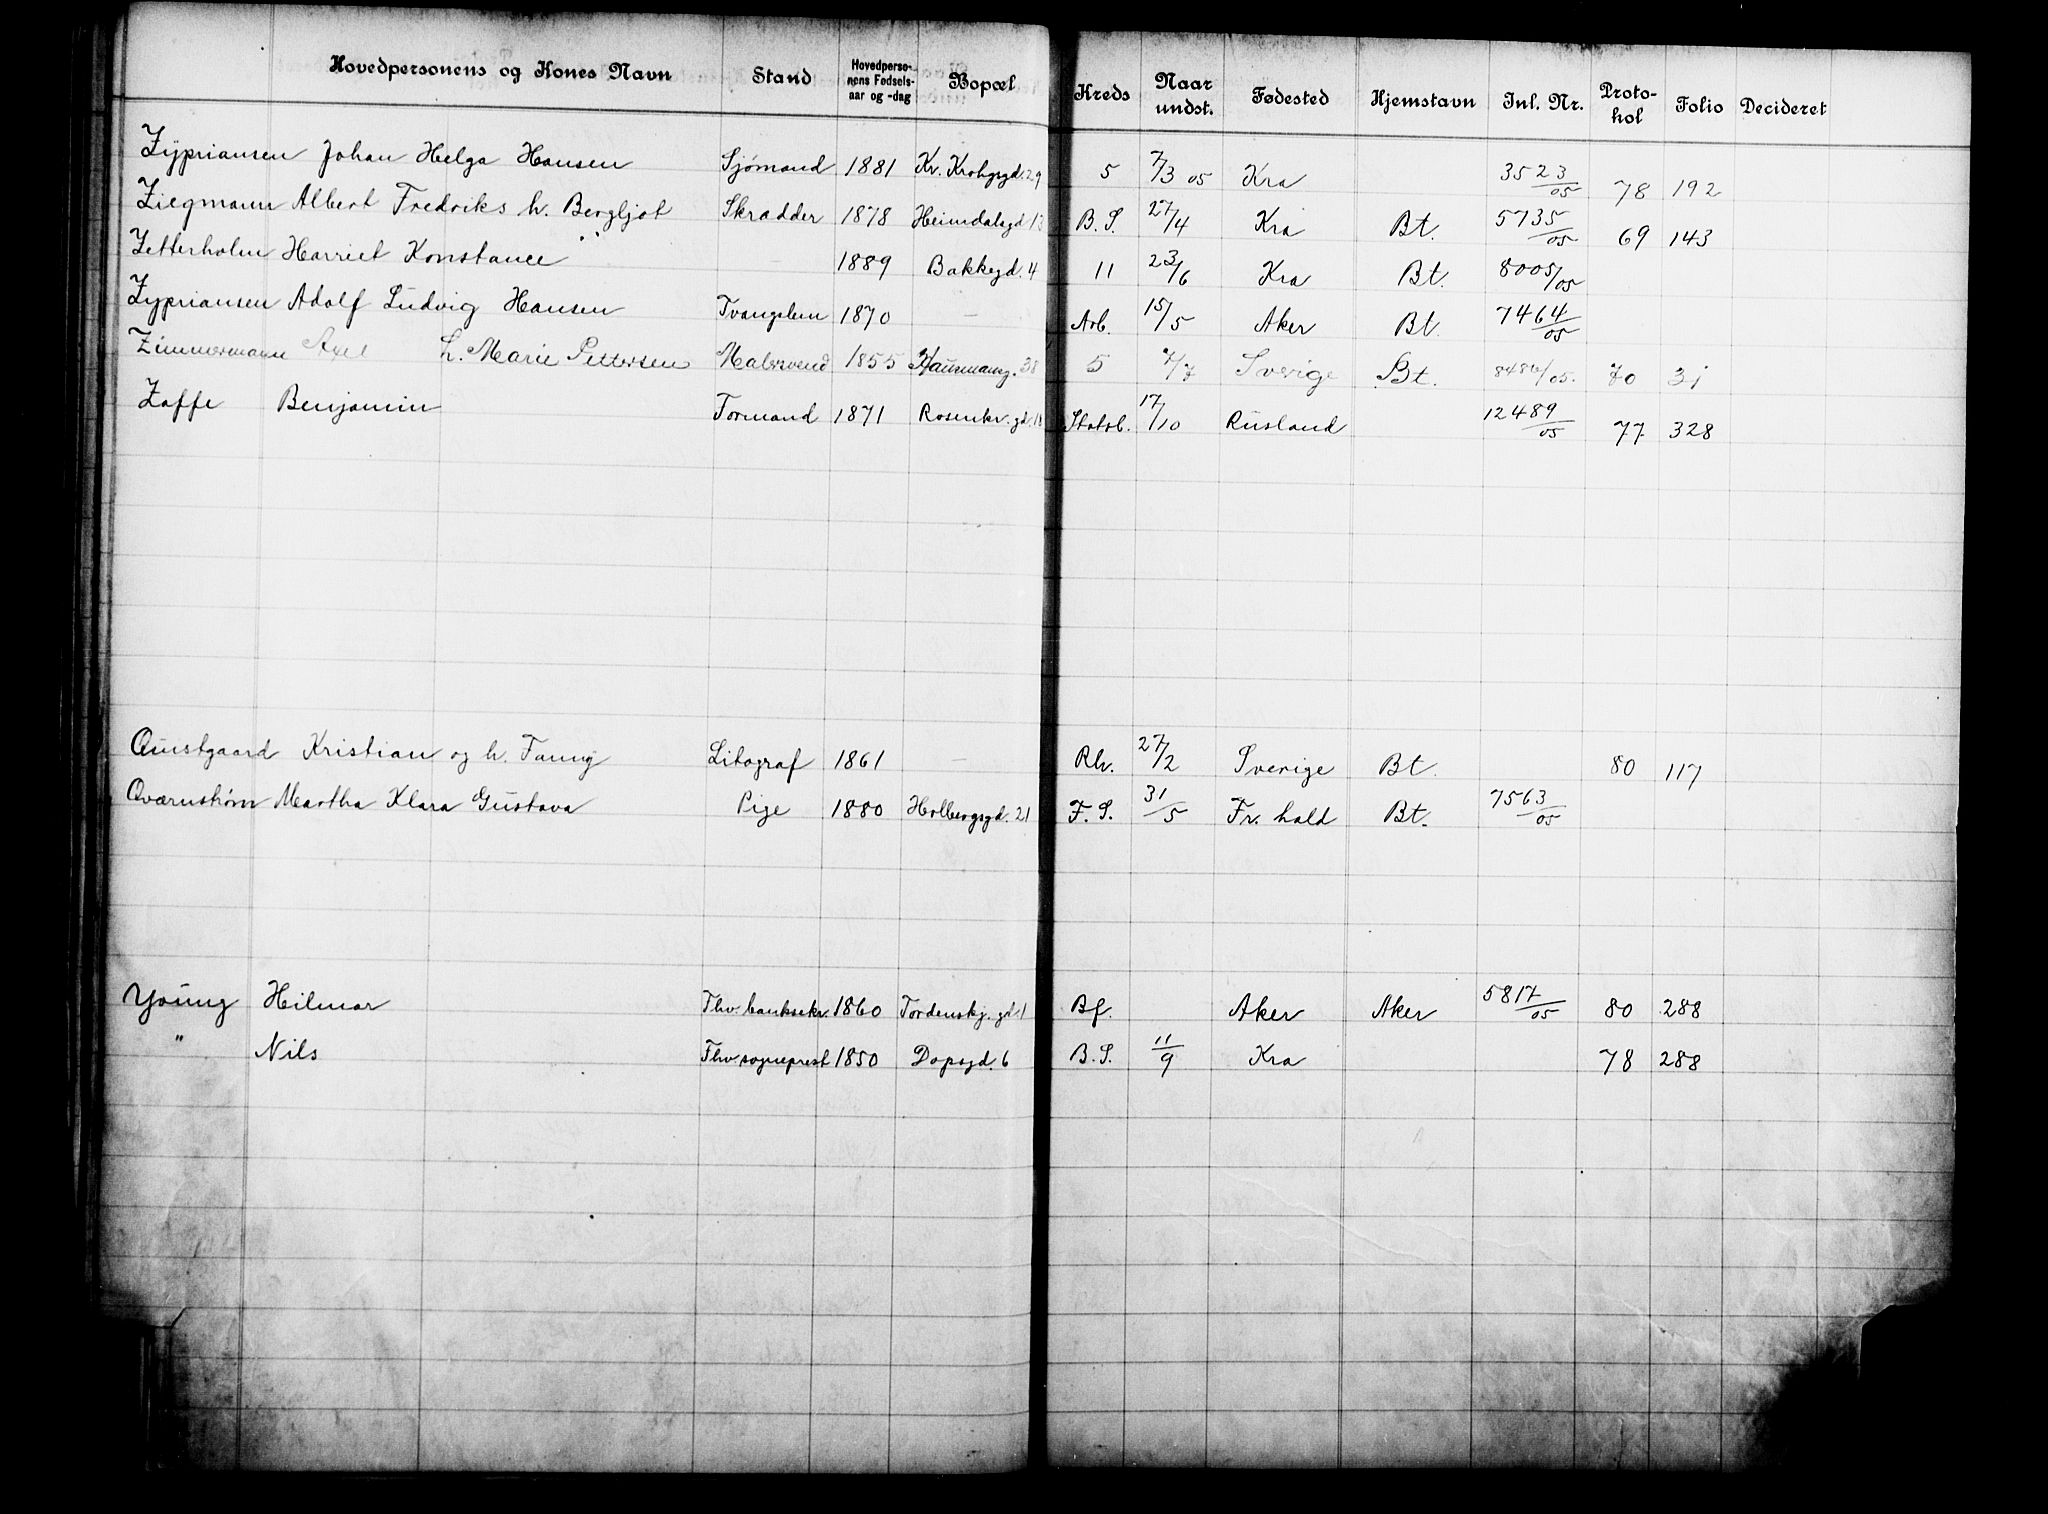 Hovedpersonens og Kones Navn Stand Hovedpersonens Fødselsaar og -dag Bopæl Kreds Naar undst. Fødested Hjemstavn Inl. Nr. Protokol Folio Decideret
Zypriansen Johan Helga Hansen Sjømand 1881 Kr. Krohgsgd. 29 5 7/3 05 Kra 3523/05 78 192
Ziegmann Albert Fredriks h. Bergljot Skrædder 1878 Heimdalsgd 13 B. S. 27/4 Kra Bt. 5735/05 69 143
Zetterholm Harriet Konstance 1889 Bakkegd. 4 11 23/6 Kra Bt. 8005/05
Zypriansen Adolf Ludvig Hansen Tvangslem 1870 — Arb. 15/5 Aker Bt. 7464/05
Zimmermann Axel h. Marie Pettersen Malersvend 1855 Hausmansg. 38 5 7/7 Sverige Bt. 8486/05. 70 31
Zaffe Benjamin Formand 1871 Rosenkr. gd. Statsb. 17/10 Rusland 12489/05 77 328
Quistgaard Kristian og h. Fanny Litograf 1861 — Rh. 27/2 Sverige Bt. 80 117
Qværnstrøm Martha Klara Gustava Pige 1880 Holbergsgd. 21 F. S. 31/5 Fr. hald Bt. 7563/05
Young Hilmar Fhv. banksekr. 1860 Tordenskj. gd. 1 Bf. Aker Aker 5817/05 80 288
" Nils Fhv. sogneprest 1850 Dopsgd. 6 B. S. 11/9 Kra 78 288